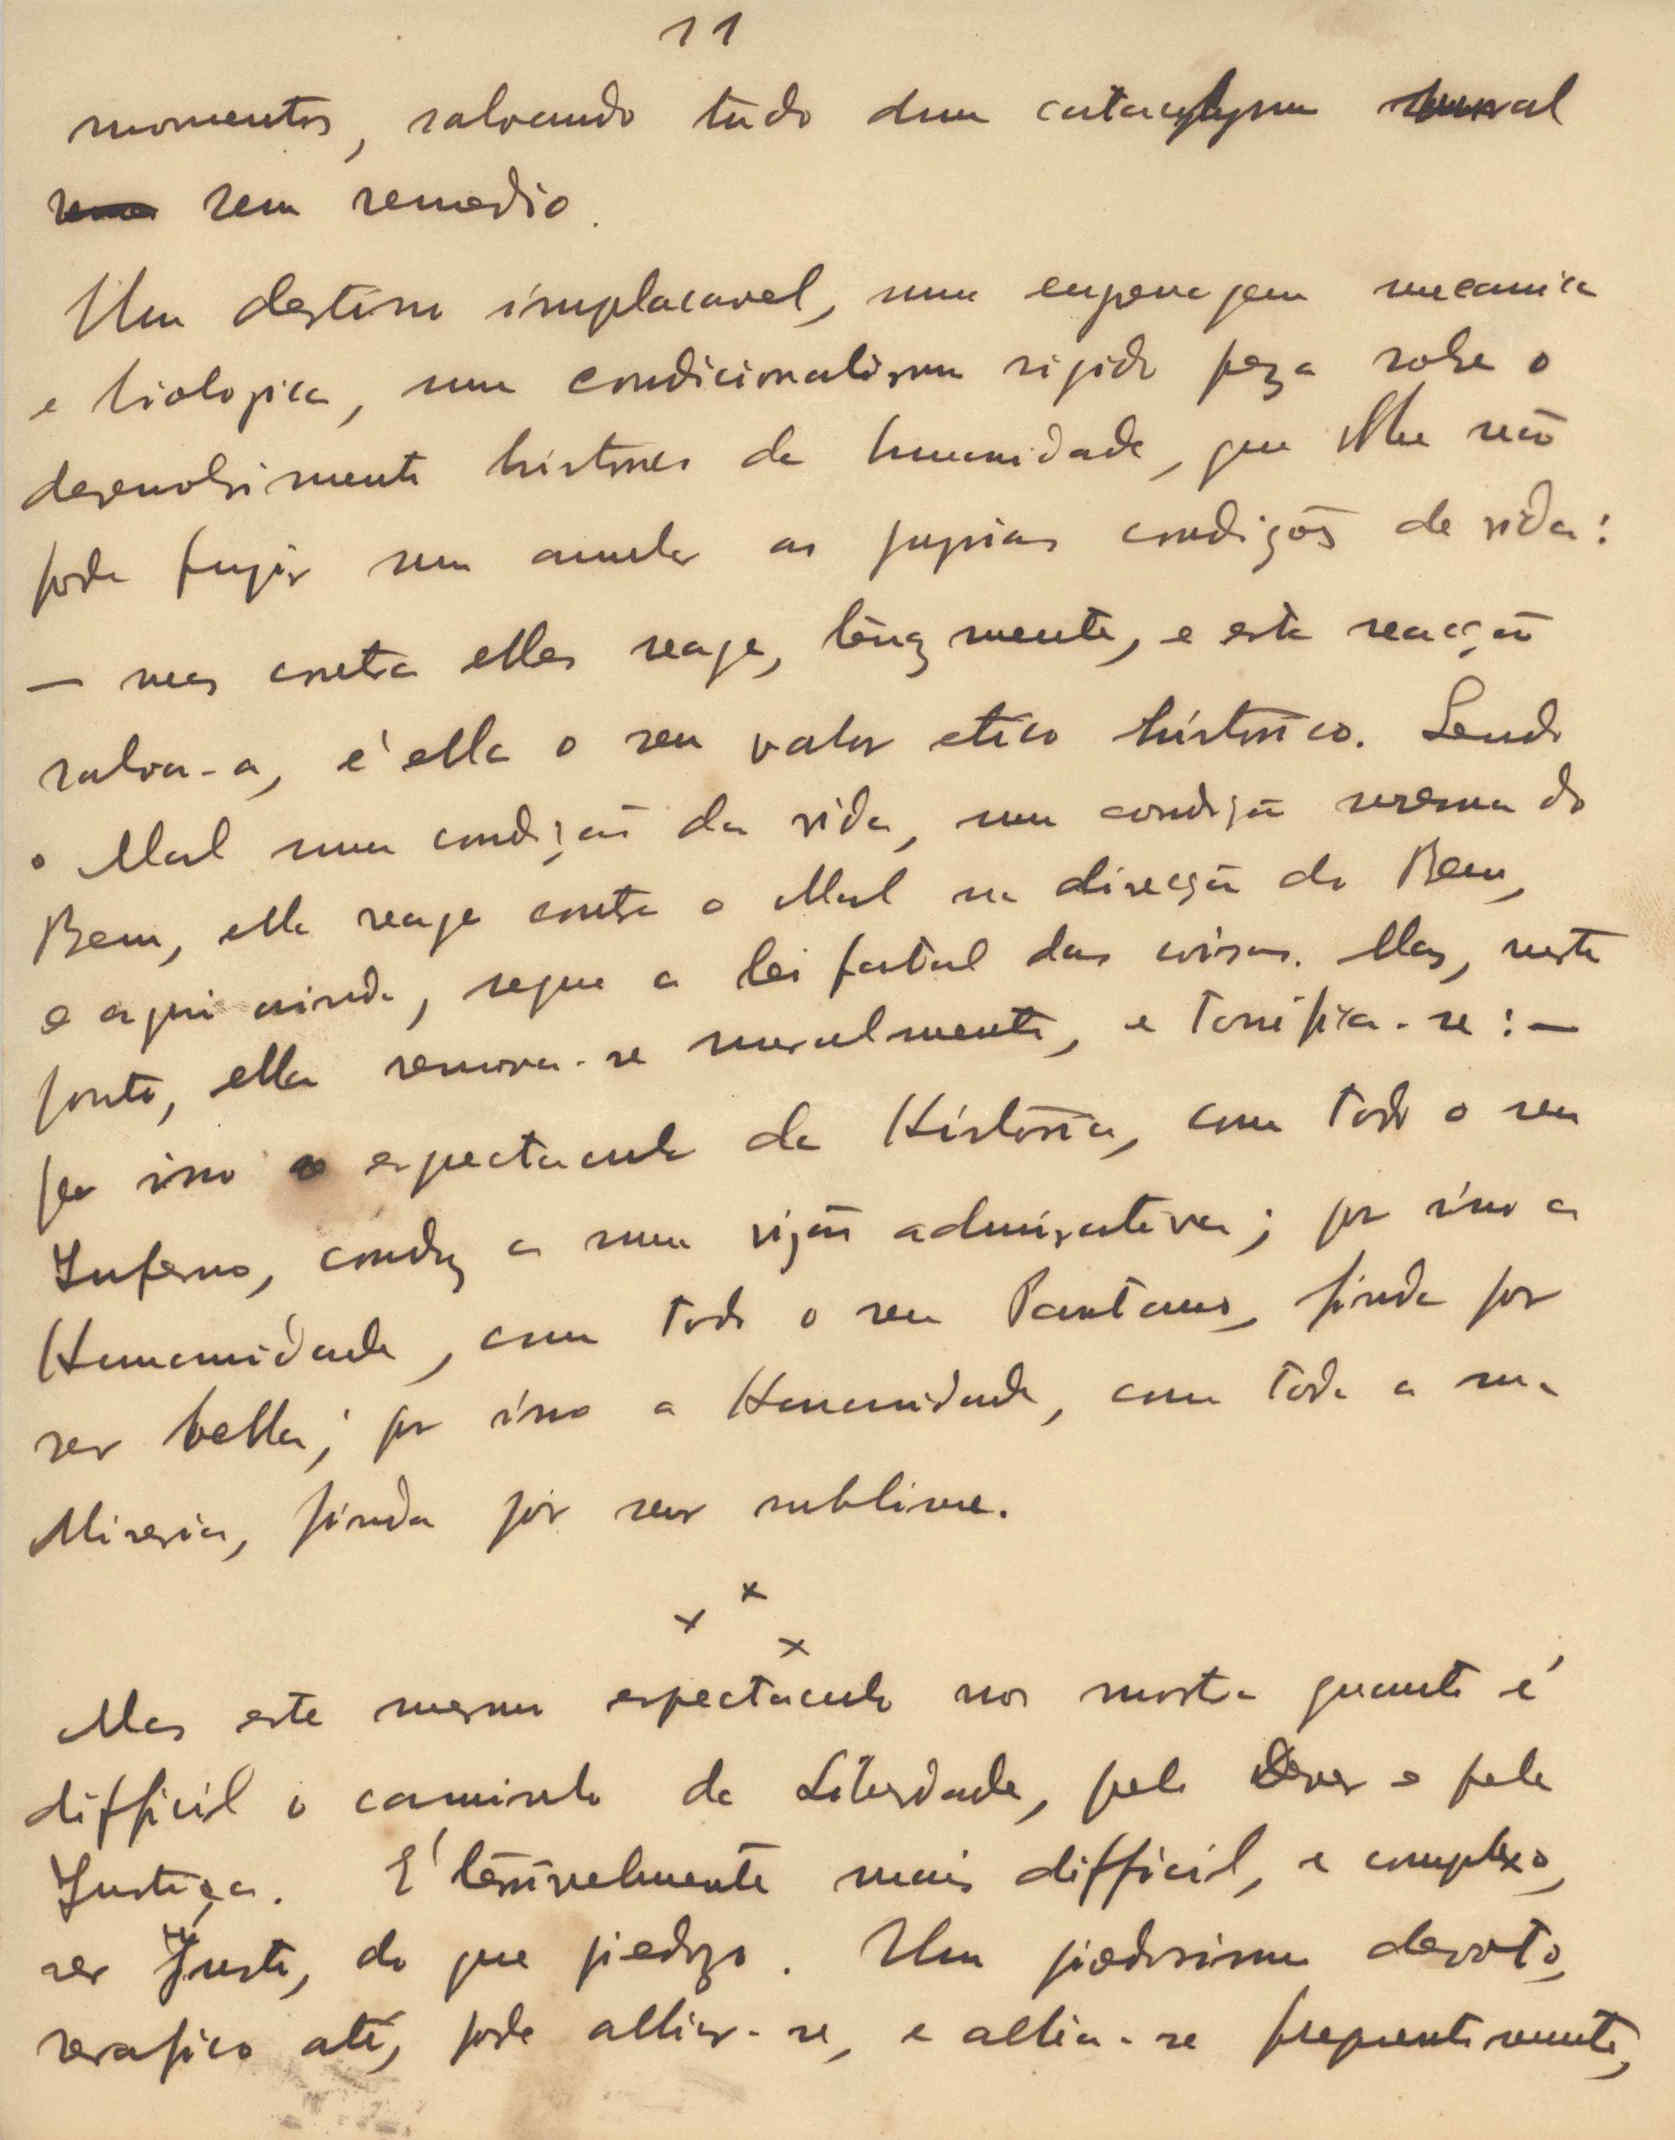 11
momentos, salvando tudo dum cataclysmo moral
sem remedio.
Um destino implacavel, uma engrenagem mecanica
e biologica, um condicionalismo rigido peza sobre o
desenvolvimento historico da humanidade, que ella não
pode fugir sem anular as proprias condições de vida:
— mas contra elles reage, tenazmente, e esta reacção
salva-a, é ella o seu valor etico historico. Sendo
o Mal uma condição da vida, uma condição mesma do
Bem, ella reage contra o Mal na direcção do Bem,
e aqui ainda, segue a lei fatal das coisas. Mas, neste
ponto, ella renova-se moralmente, e tonifica-se: —
por isso o espectaculo da Historia, com todo o seu
Inferno, conduz a uma visão admirativa; por isso a
Humanidade, com todo o seu Pantano, finda por
ser bella; por isso a Humanidade, com toda a sua
Miseria, finda por ser sublime.
x x x
Mas este mesmo espectaculo nos mostra quanto é
difficil o caminho da Liberdade, pelo Dever e pela
Justiça. É terrivelmente mais difficil, e complexo,
ser Justo, do que piedozo. Um piedosismo devoto,
serafico até, pode alliar-se, e allia-se frequentemente,